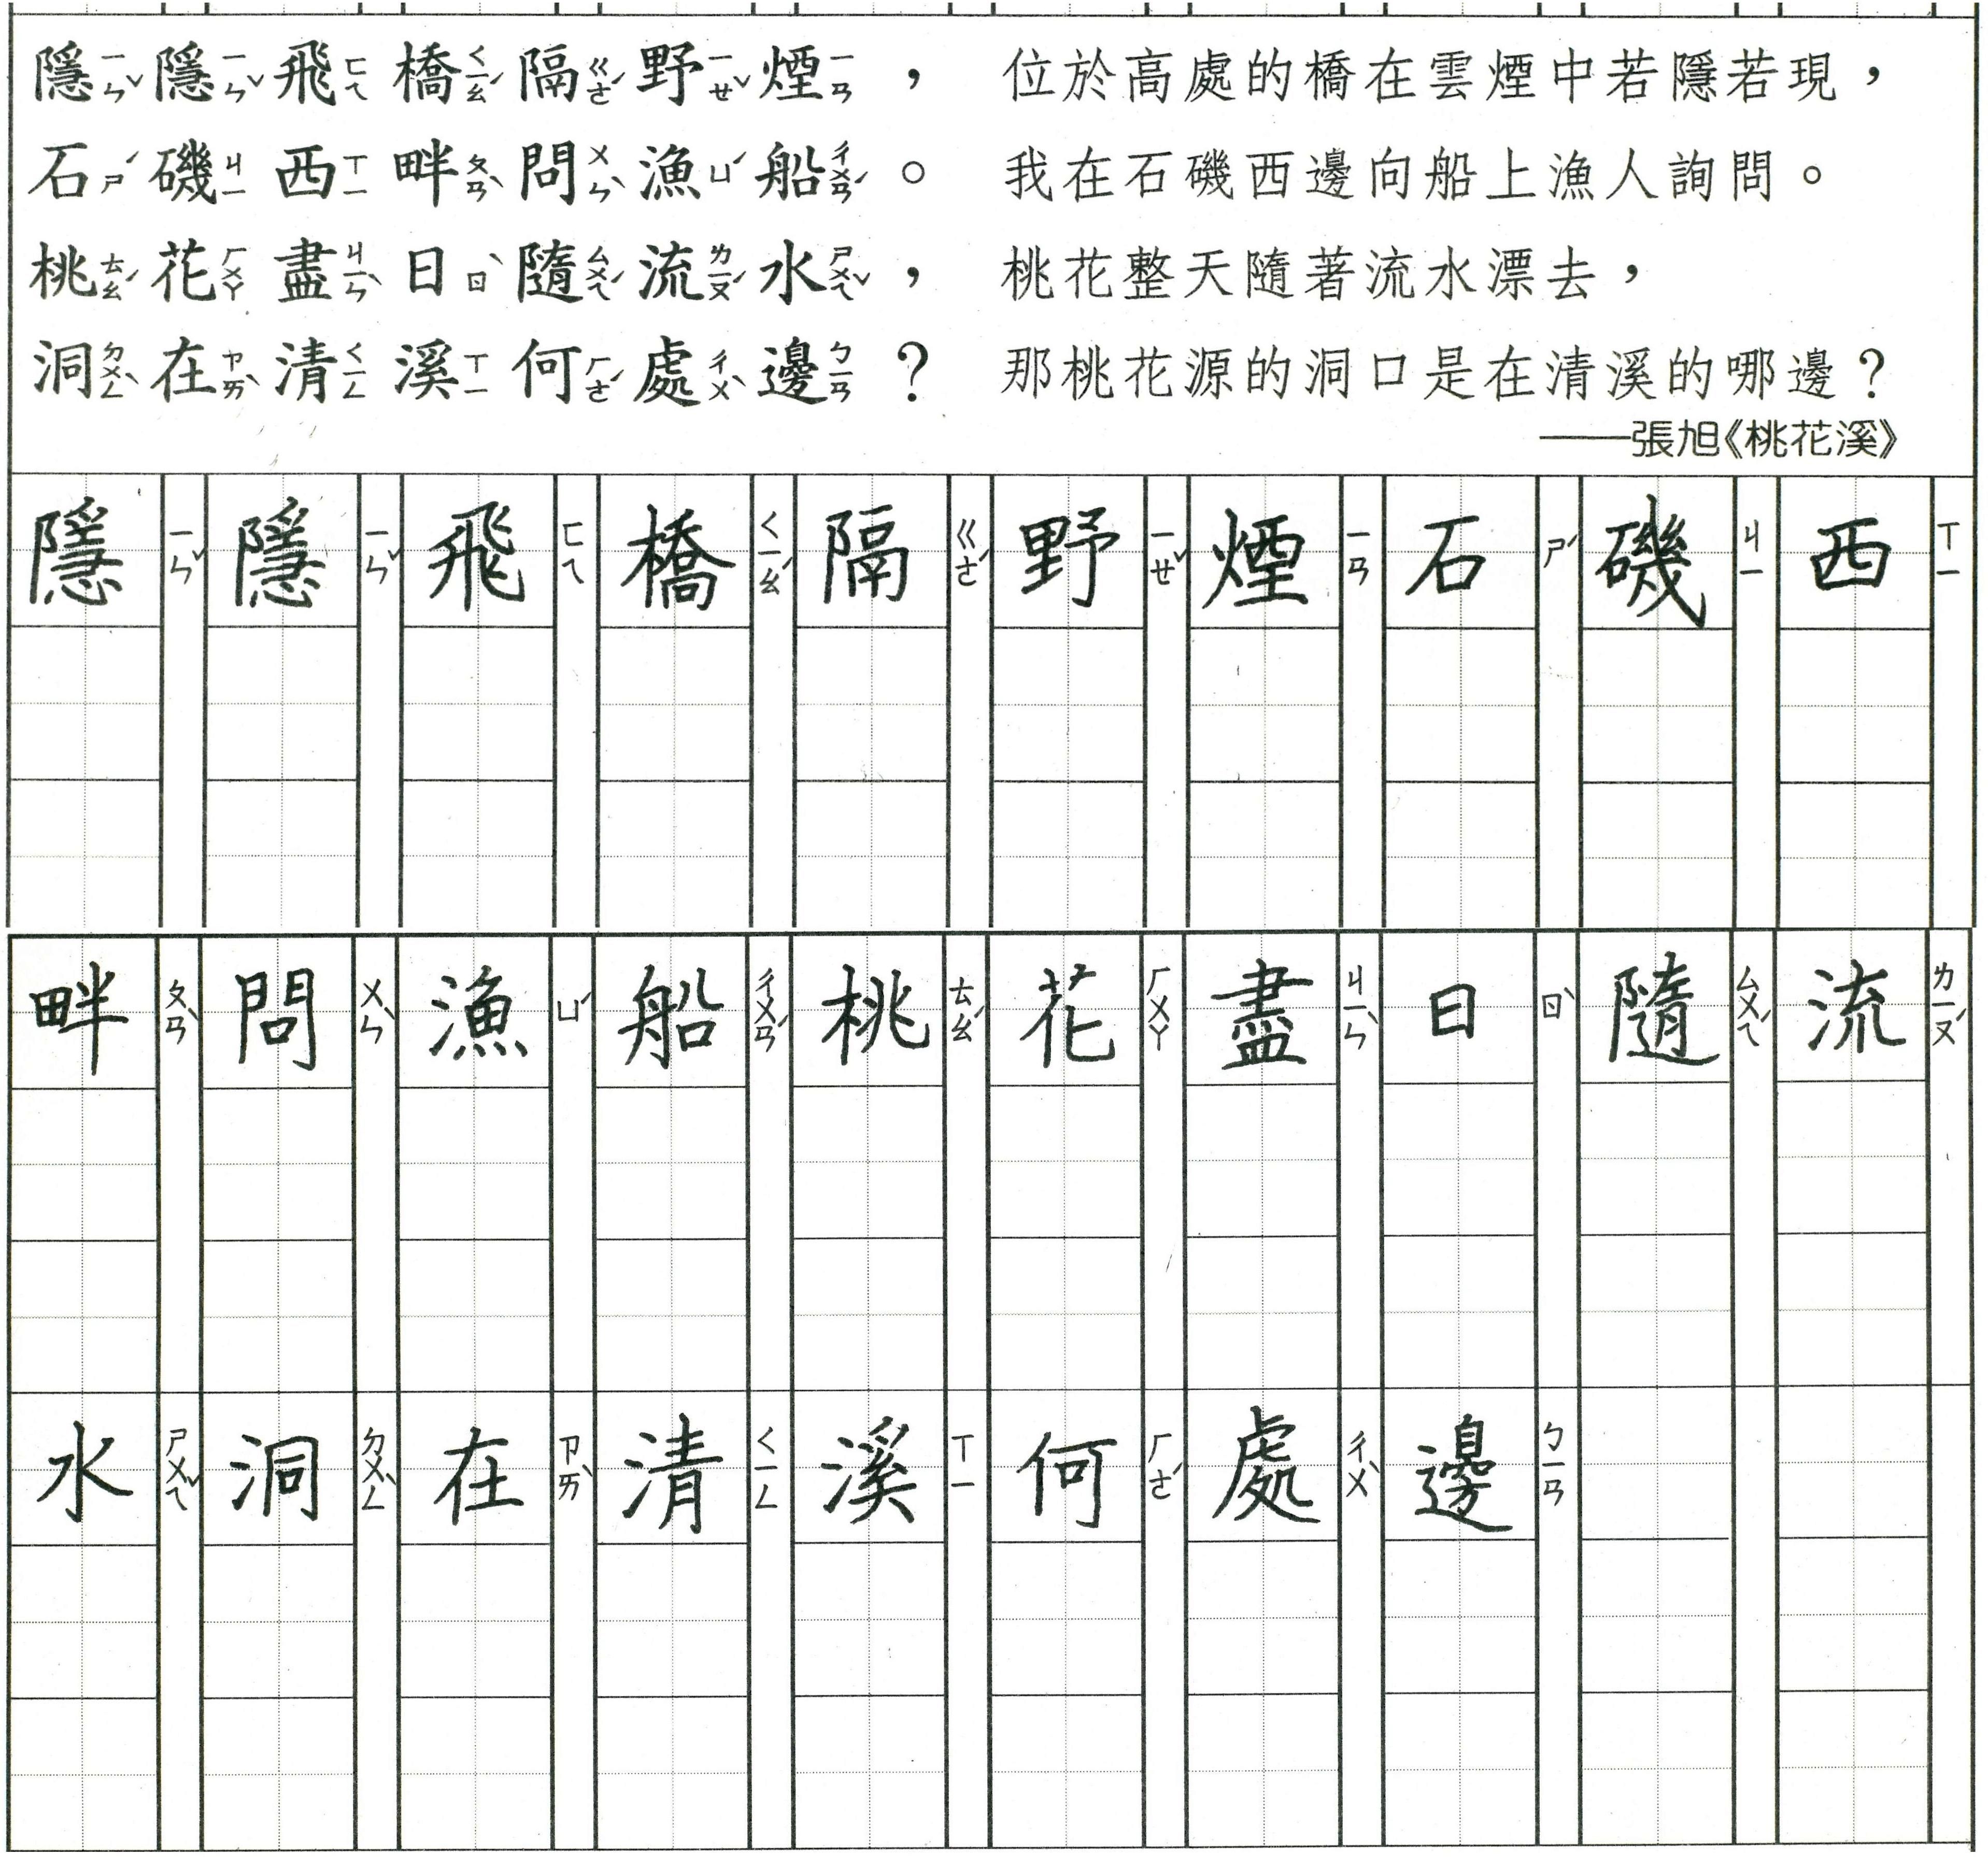 隱ㄧㄣˇ隱ㄧㄣˇ飛ㄈㄟ橋ㄑㄧㄠˊ隔ㄍㄜˊ野ㄧㄝˇ煙ㄧㄢ， 位於高處的橋在雲煙中若隱若現，
石ㄕˊ磯ㄐㄧ西ㄒㄧ畔ㄆㄢˋ問ㄨㄣˋ漁ㄩˊ船ㄔㄨㄢˊ。 我在石磯西邊向船上漁人詢問。
桃ㄊㄠˊ花ㄏㄨㄚ盡ㄐㄧㄣˋ日ㄖˋ隨ㄙㄨㄟˊ流ㄌㄧㄡˊ水ㄕㄨㄟˇ， 桃花整天隨著流水漂去，
洞ㄉㄨㄥˋ在ㄗㄞˋ清ㄑㄧㄥ溪ㄒㄧ何ㄏㄜˊ處ㄔㄨˋ邊ㄅㄧㄢ？ 那桃花源的洞口是在清溪的哪邊？
——張旭《桃花溪》
隱ㄧㄣˇ 隱ㄧㄣˇ 飛ㄈㄟ 橋ㄑㄧㄠˊ 隔ㄍㄜˊ 野ㄧㄝˇ 煙ㄧㄢ 石ㄕˊ 磯ㄐㄧ 西ㄒㄧ
畔ㄆㄢˋ 問ㄨㄣˋ 漁ㄩˊ 船ㄔㄨㄢˊ 桃ㄊㄠˊ 花ㄏㄨㄚ 盡ㄐㄧㄣˋ 日ㄖˋ 隨ㄙㄨㄟˊ 流ㄌㄧㄡˊ
水ㄕㄨㄟˇ 洞ㄉㄨㄥˋ 在ㄗㄞˋ 清ㄑㄧㄥ 溪ㄒㄧ 何ㄏㄜˊ 處ㄔㄨˋ 邊ㄅㄧㄢ